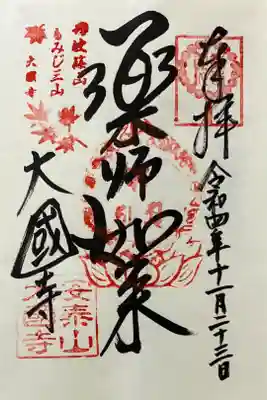 奉拝
令和四年十一月二十三日
薬師如来
丹波篠山
もみじ三山
大國寺
大國寺
安泰山
大国寺